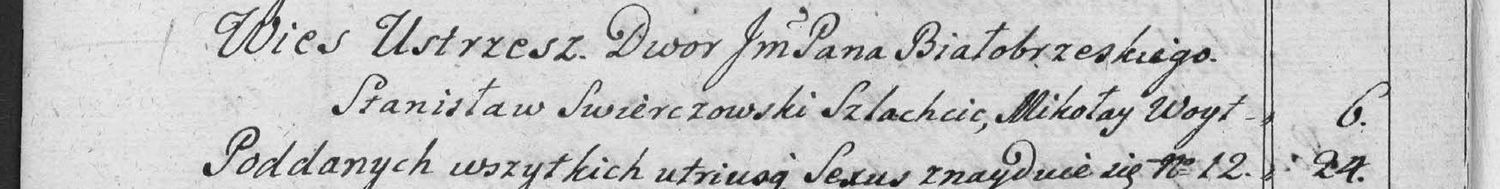 Wies Ustrzesz. Dwor Jmˢ Pana Białobrzeskiego.
Stanisław Swierczowski Szlachcic, Mikołay Woyt - 6.
Poddanych wszytkich utriusq Sexus znayduie się No 12. : 24.